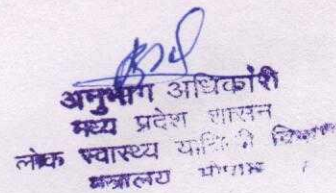 अनुभाग अधिकारी
मध्य प्रदेश शासन
लोक स्वास्थ्य यांत्रिकी विभाग
मंत्रालय भोपाल